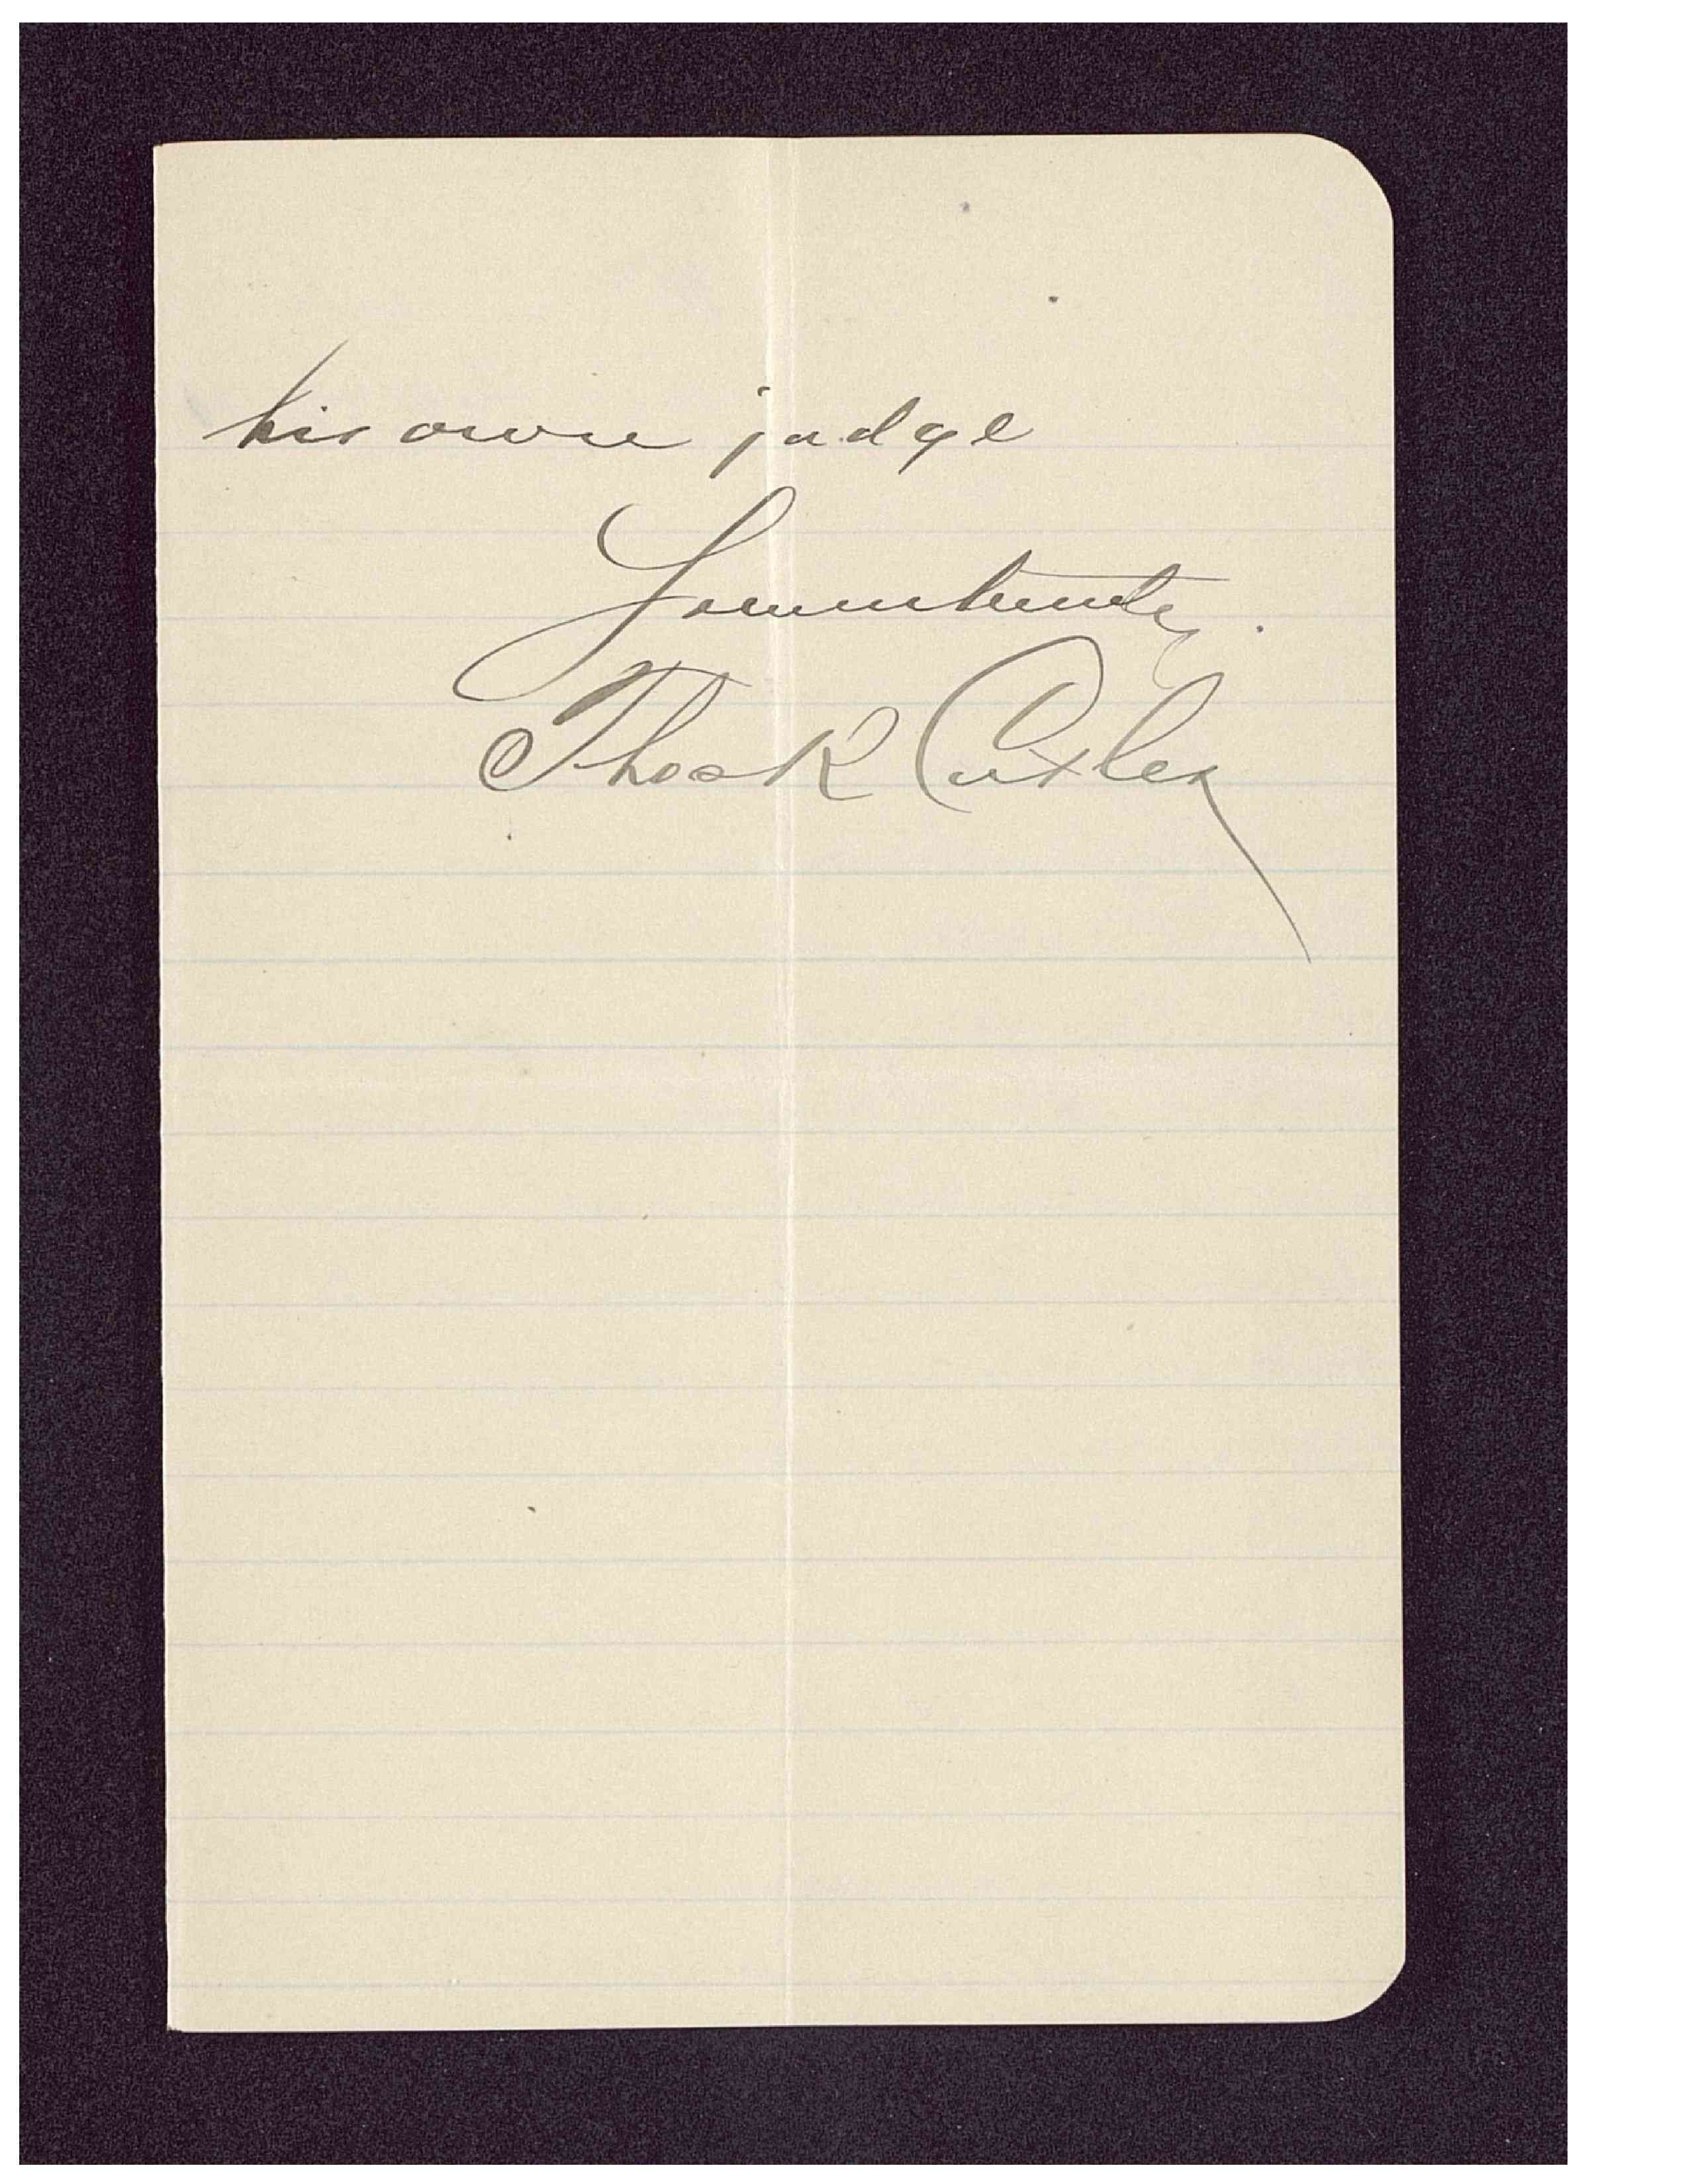 his own judge
Thos R Cutler